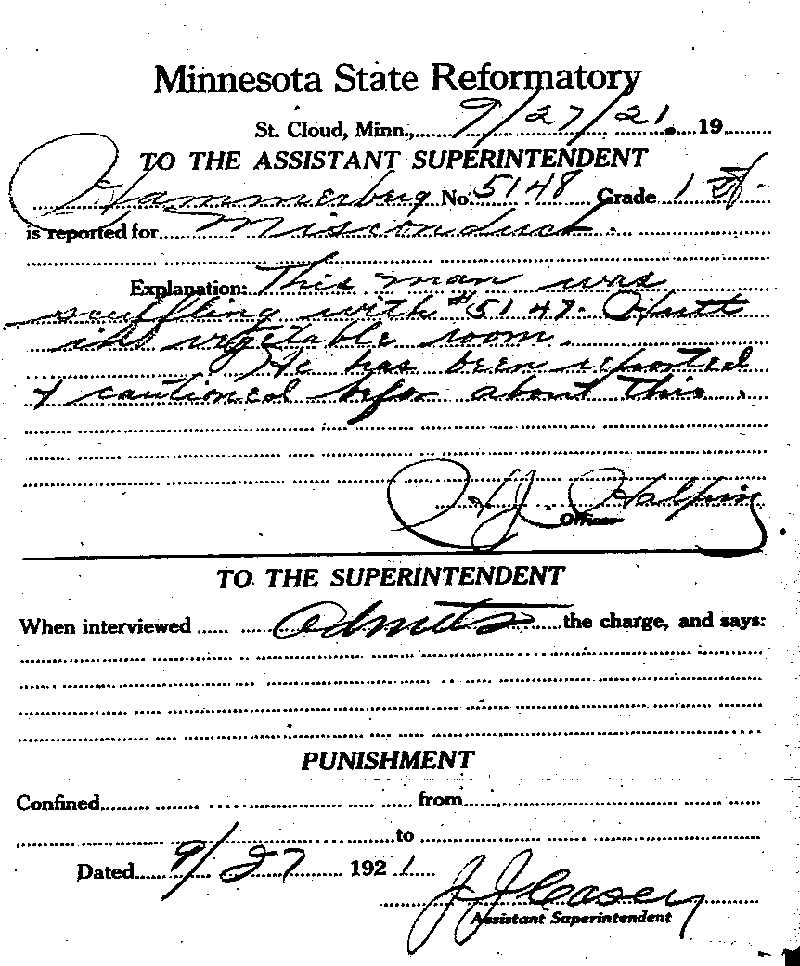 Minnesota State Reformatory
St. Cloud, Minn., 9/27/21. 19
TO THE ASSISTANT SUPERINTENDENT
Hammerberg No. 5148 Grade 1st.
is reported for Misconduct.
Explanation: This man was
scuffling with #5147. Hutt
in vegetable room.
He has been reported
& cautioned befor about this.
H.J. Halpin
Officer
TO THE SUPERINTENDENT
When interviewed Admits the charge, and says:
PUNISHMENT
Confined from
to
Dated 9/27 1921
J J Casey
Assistant Superintendent